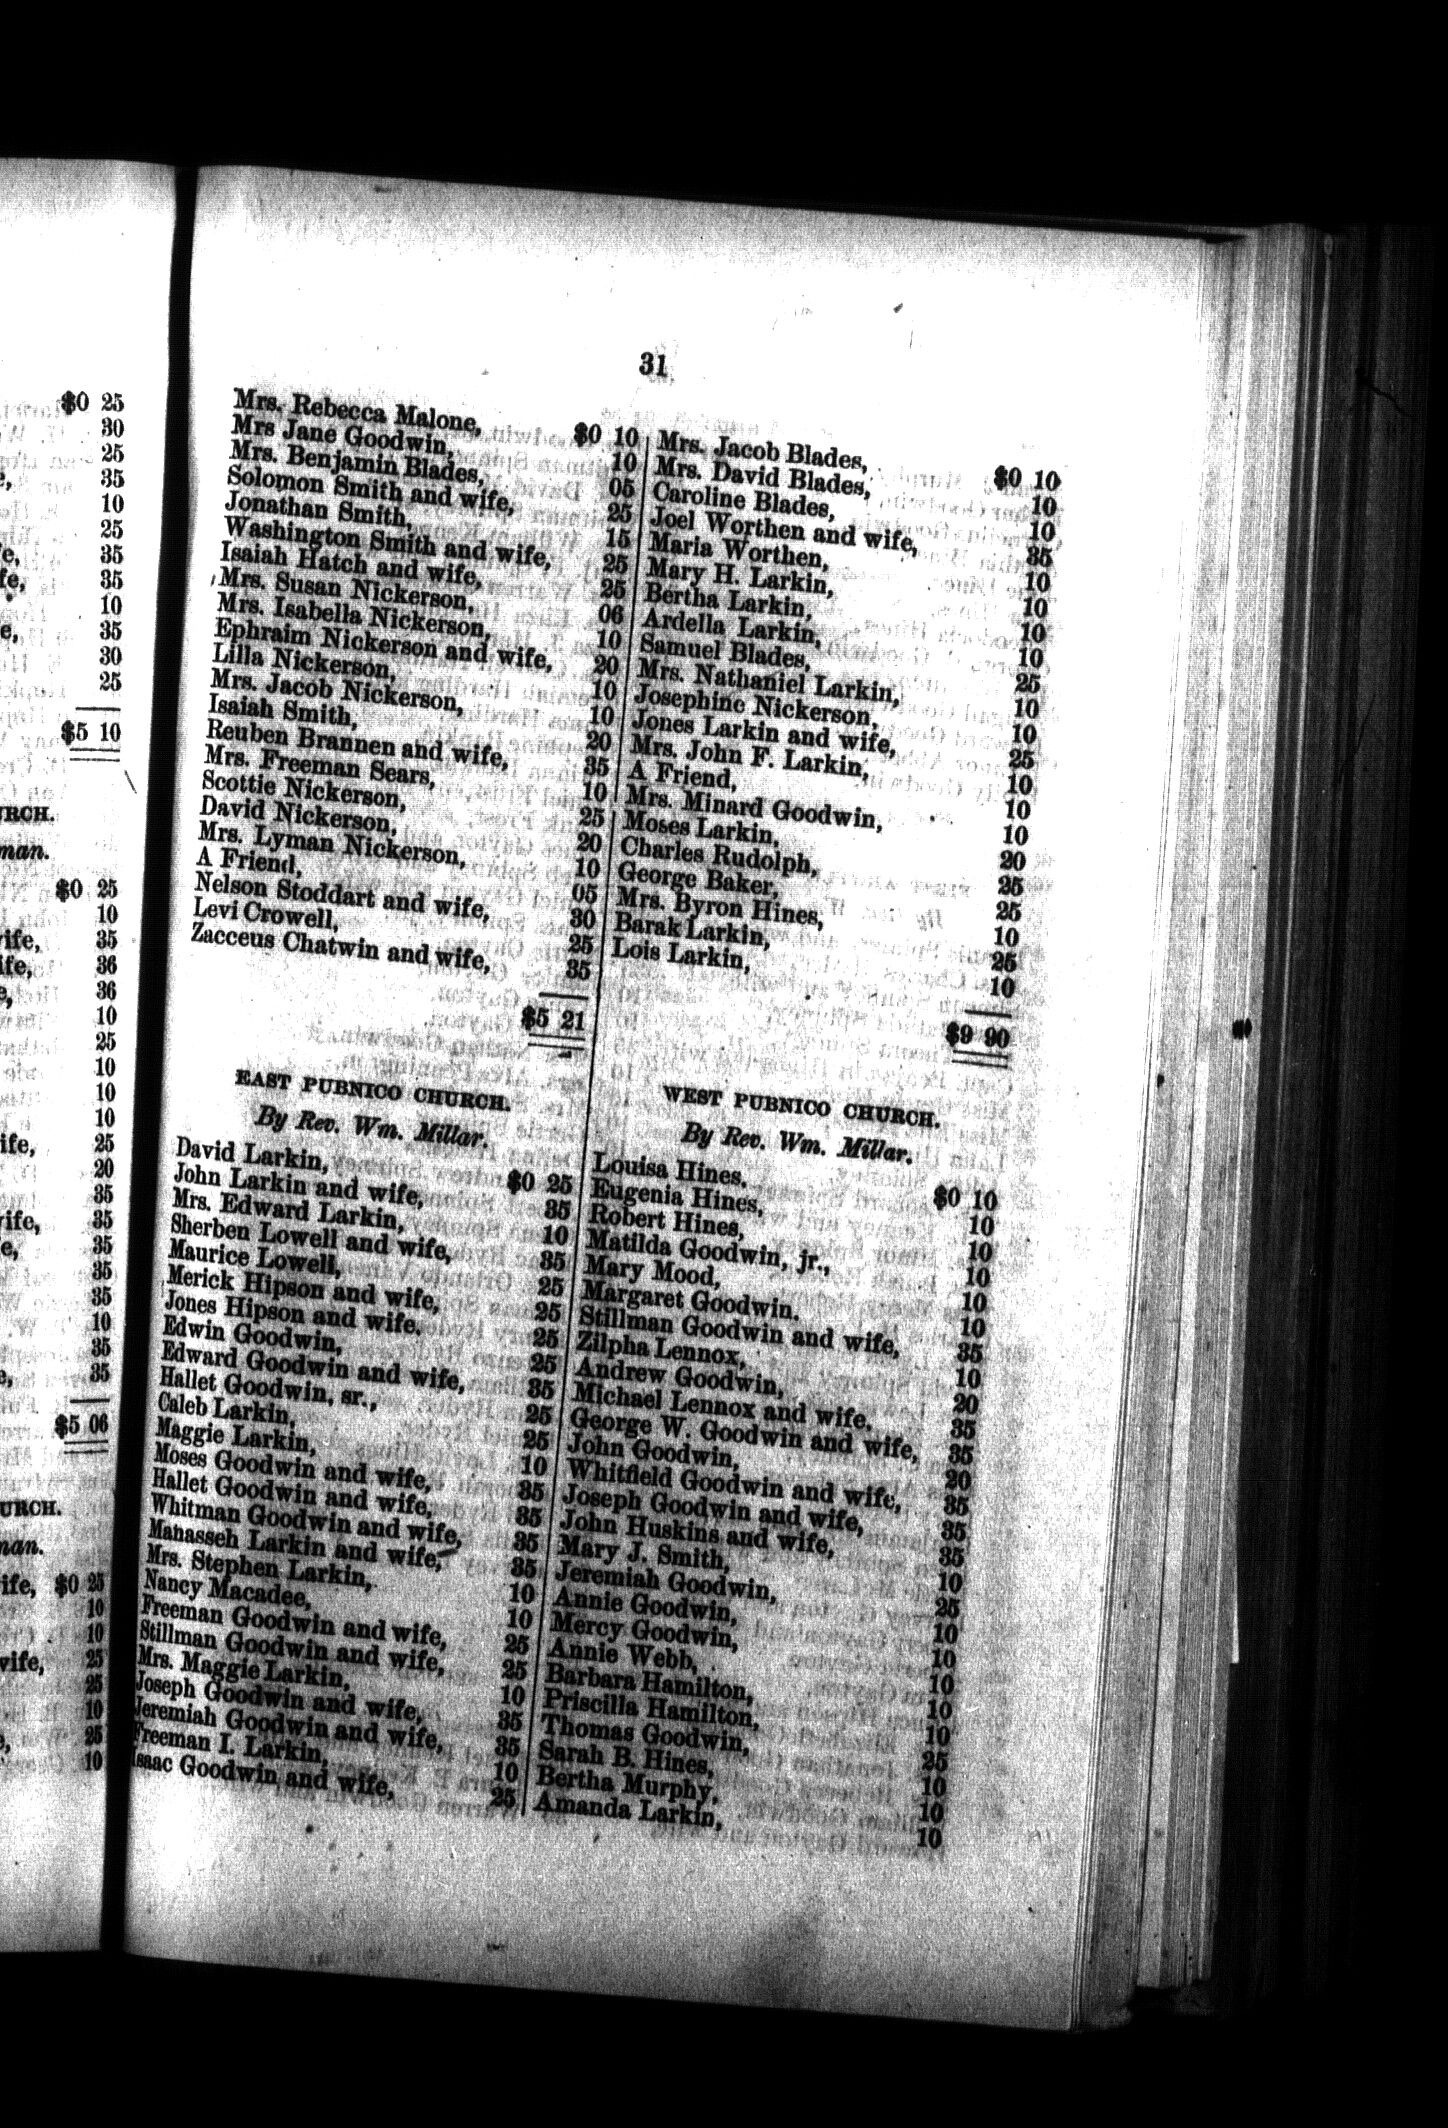 $0 25
30
25
35
10
25
35
35
10
35
30
25
$5 10
man.
$0 25
10
35
36
36
10
25
10
10
10
25
20
35
35
35
35
35
10
35
35
$5 06
wife, $0 25
10
10
wife, 25
25
10
25
10
31
Mrs. Rebecca Malone, $0 10
Mrs Jane Goodwin, 10
Mrs. Benjamin Blades, 05
Solomon Smith and wife, 25
Jonathan Smith, 15
Washington Smith and wife, 25
Isaiah Hatch and wife, 25
Mrs. Susan Nickerson, 06
Mrs. Isabella Nickerson, 10
Ephraim Nickerson and wife, 20
Lilla Nickerson, 10
Mrs. Jacob Nickerson, 10
Isaiah Smith, 20
Reuben Brannen and wife, 35
Mrs. Freeman Sears, 10
Scottie Nickerson, 25
David Nickerson, 20
Mrs. Lyman Nickerson, 10
A Friend, 05
Nelson Stoddart and wife, 30
Levi Crowell, 25
Zacceus Chatwin and wife, 35
$5 21
EAST PUBNICO CHURCH.
By Rev. Wm. Millar.
David Larkin, $0 25
John Larkin and wife, 35
Mrs. Edward Larkin, 10
Sherben Lowell and wife, 35
Maurice Lowell, 25
Merick Hipson and wife, 25
Jones Hipson and wife. 25
Edwin Goodwin, 25
Edward Goodwin and wife, 35
Hallet Goodwin, sr., 25
Caleb Larkin, 25
Maggie Larkin, 10
Moses Goodwin and wife, 35
Hallet Goodwin and wife, 35
Whitman Goodwin and wife, 35
Manasseh Larkin and wife, 35
Mrs. Stephen Larkin, 10
Nancy Macadee, 10
Freeman Goodwin and wife, 25
Stillman Goodwin and wife, 25
Mrs. Maggie Larkin, 10
Joseph Goodwin and wife, 35
Jeremiah Goodwin and wife, 35
Freeman I. Larkin, 10
Isaac Goodwin and wife, 25
Mrs. Jacob Blades, $0 10
Mrs. David Blades, 10
Caroline Blades, 10
Joel Worthen and wife, 35
Maria Worthen, 10
Mary H. Larkin, 10
Bertha Larkin, 10
Ardella Larkin, 10
Samuel Blades, 25
Mrs. Nathaniel Larkin, 10
Josephine Nickerson, 10
Jones Larkin and wife, 25
Mrs. John F. Larkin, 10
A Friend, 10
Mrs. Minard Goodwin, 10
Moses Larkin, 20
Charles Rudolph, 25
George Baker, 25
Mrs. Byron Hines, 10
Barak Larkin, 25
Lois Larkin, 10
$9 90
WEST PUBNICO CHURCH.
By Rev. Wm. Millar.
Louisa Hines. $0 10
Eugenia Hines, 10
Robert Hines, 10
Matilda Goodwin, jr., 10
Mary Mood, 10
Margaret Goodwin. 10
Stillman Goodwin and wife, 35
Zilpha Lennox, 10
Andrew Goodwin, 20
Michael Lennox and wife. 35
George W. Goodwin and wife, 35
John Goodwin, 20
Whitfield Goodwin and wife, 35
Joseph Goodwin and wife, 35
John Huskins and wife, 35
Mary J. Smith, 10
Jeremiah Goodwin, 25
Annie Goodwin, 10
Mercy Goodwin, 10
Annie Webb, 10
Barbara Hamilton, 10
Priscilla Hamilton, 10
Thomas Goodwin, 25
Sarah B. Hines, 10
Bertha Murphy, 10
Amanda Larkin, 10